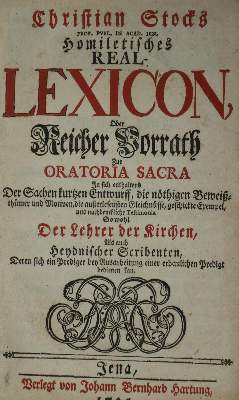 Christian Stocks
PROF. PVBL. IN ACAD. IEN.
Homiletisches
REAL-
LEXICON,
Oder
Reicher Vorrath
Zur
ORATORIA SACRA
In sich enthaltend
Der Sachen kurtzen Entwurff, die nöthigen Beweiß-
thümer und Motiven, die außerlesensten Gleichnisse, geschickte Exempel,
und nachdenkliche Testimonia
Sowohl
Der Lehrer der Kirchen,
Als auch
Heydnischer Scribenten,
Deren sich ein Prediger bey Ausarbeitung einer erbaulichen Predigt
bedienen kan.
Jena,
Verlegt von Johann Bernhard Hartung,